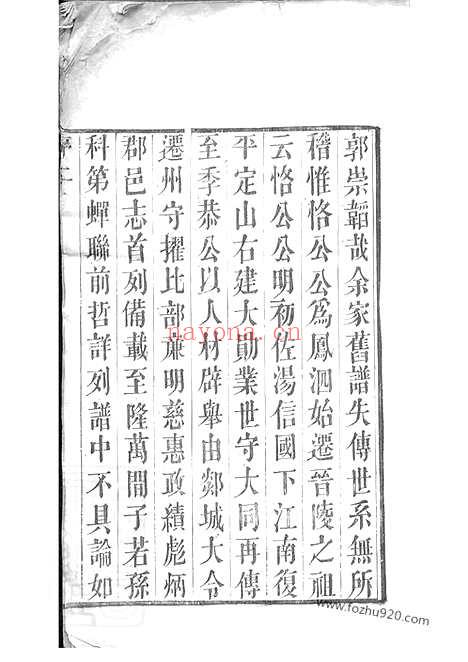 郭崇韜哉余家舊譜失傳世系無所
稽惟恪公公爲鳳泗始遷晉陵之祖
云恪公公明初佐湯信國下江南復
平定山右建大勛業世守大同再傳
至季恭公以人材辟舉由郯城大令
遷州守擢比部廉明慈惠政績彪炳
郡邑志首列備載至隆萬間子若孫
科第蟬聯前哲詳列譜中不具論如
nayona.cn
www.fozhu920.com